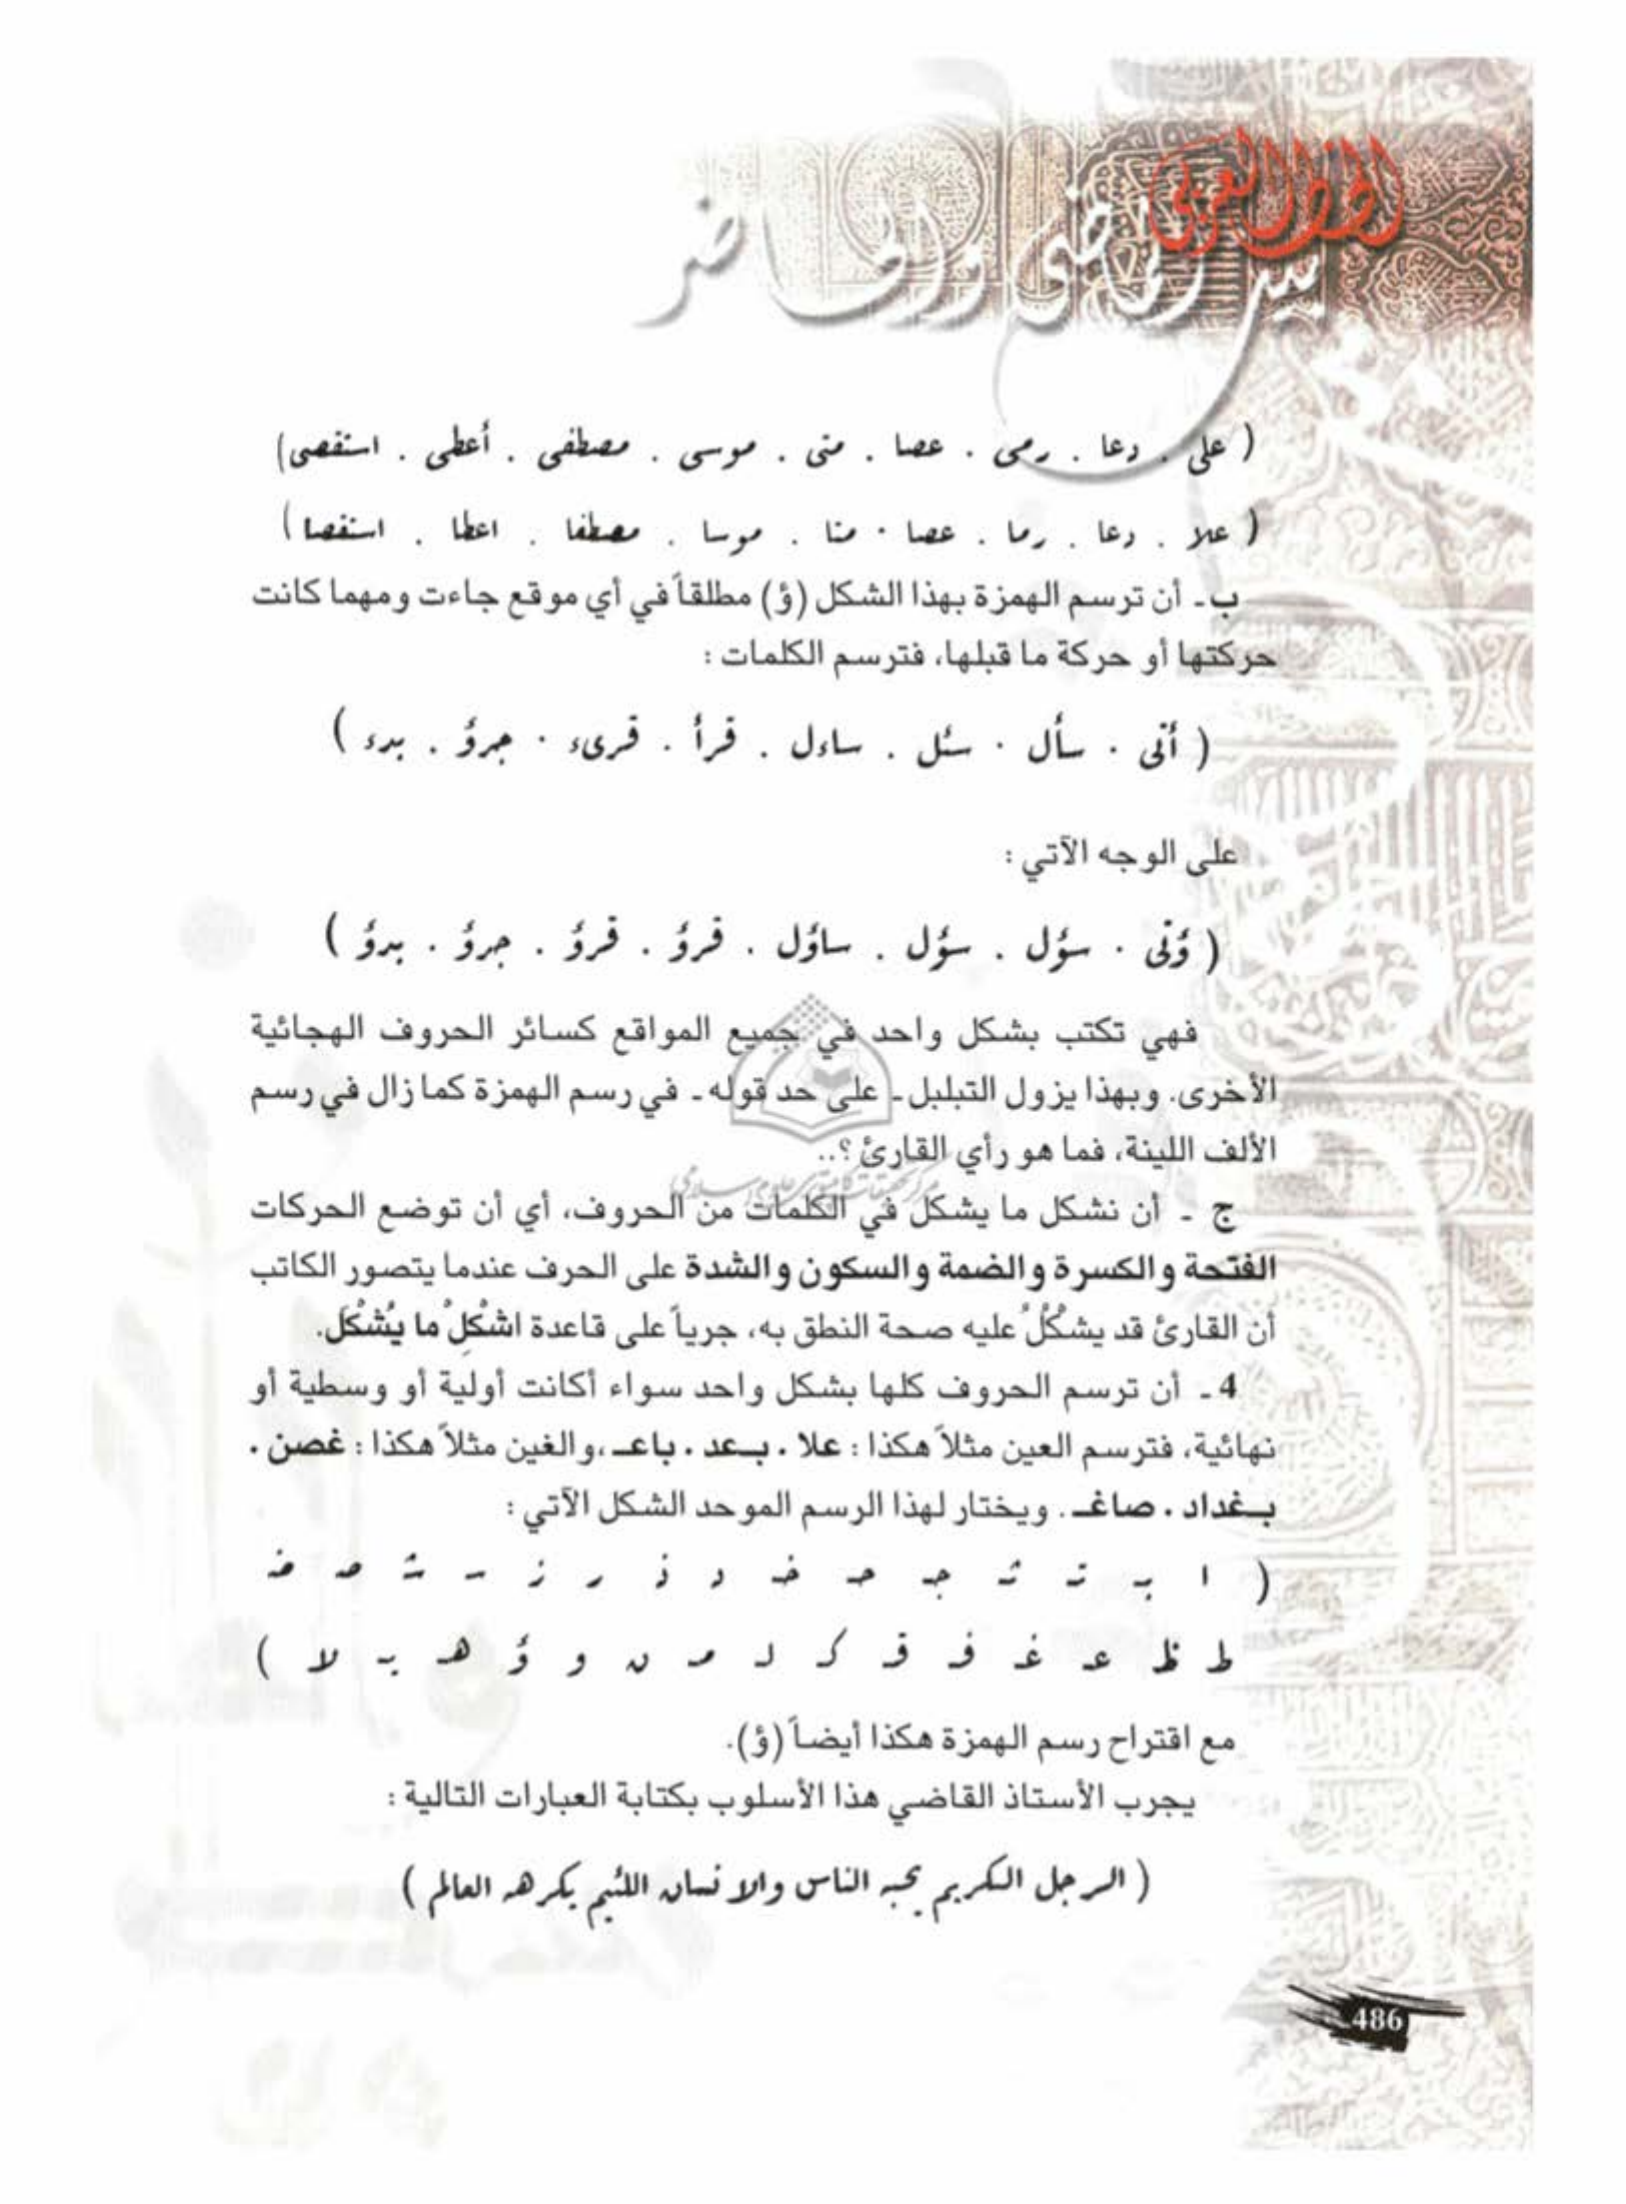 الخط العربي
بين الماضي والحاضر
( على . دعا . رمى . عصا . متى . موسى . مصطفى . أعطى . استقصى)
( علا . دعا . رما . عصا . متا . موسا . مصطفا . اعطا . استقصا )
ب ـ أن ترسم الهمزة بهذا الشكل (ؤ) مطلقاً في أي موقع جاءت ومهما كانت
حركتها أو حركة ما قبلها، فترسم الكلمات :
( أتى . سأل . سئل . ساءل . قرأ . قرىء . جرؤ . بدء )
على الوجه الآتي :
( ؤتى . سؤل . سؤل . ساؤل . قرؤ . قرؤ . جرؤ . بدؤ )
فهي تكتب بشكل واحد في جميع المواقع كسائر الحروف الهجائية
الأخرى. وبهذا يزول التبلبل ـ على حد قوله ـ في رسم الهمزة كما زال في رسم
الألف اللينة، فما هو رأي القارئ ؟..
مركز تحقيقات كامپيوتري علوم اسلامي
ج ـ أن نشكل ما يشكل في الكلمات من الحروف، أي أن توضع الحركات
الفتحة والكسرة والضمة والسكون والشدة على الحرف عندما يتصور الكاتب
أن القارئ قد يشكُلُ عليه صحة النطق به، جرياً على قاعدة اشْكِلْ ما يُشْكَل.
4 ـ أن ترسم الحروف كلها بشكل واحد سواء أكانت أولية أو وسطية أو
نهائية، فترسم العين مثلاً هكذا : علا . بـعد . باعـ ،والغين مثلاً هكذا : غصن .
بـغداد . صاغـ . ويختار لهذا الرسم الموحد الشكل الآتي :
( ا بـ تـ ثـ جـ حـ خـ د ذ ر ز سـ شـ صـ ضـ
ط ظ عـ غـ فـ قـ كـ لـ مـ ن و ؤ هـ يـ لا )
مع اقتراح رسم الهمزة هكذا أيضاً (ؤ).
يجرب الأستاذ القاضي هذا الأسلوب بكتابة العبارات التالية :
( الرجل الكريم يحبه الناس والانسان اللئيم يكرهه العالم )
486